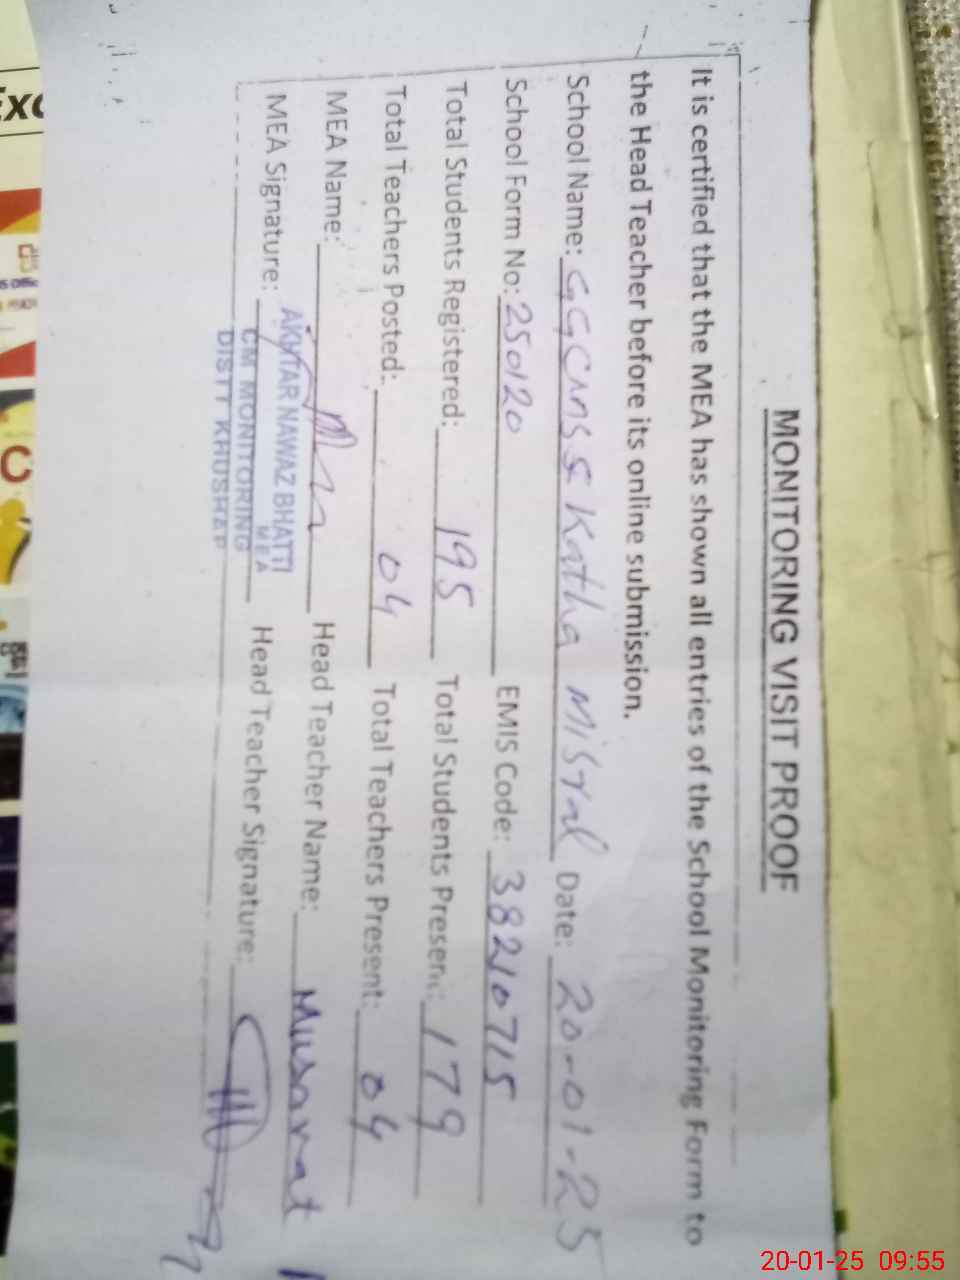 MONITORING VISIT PROOF
It is certified that the MEA has shown all entries of the School Monitoring Form to
the Head Teacher before its online submission.
School Name: Katha Misral Date: 20-01-25
School Form No: 250120 EMIS Code: 38210715
Total Students Registered: 195 Total Students Present: 179
Total Teachers Posted: 04 Total Teachers Present: 04
MEA Name: Head Teacher Name: Musarat
MEA Signature: Head Teacher Signature:
AKHTAR NAWAZ BHATTI
MEA
CM MONITORING
DISTT KHUSHAB
Exc
C
20-01-25 09:55